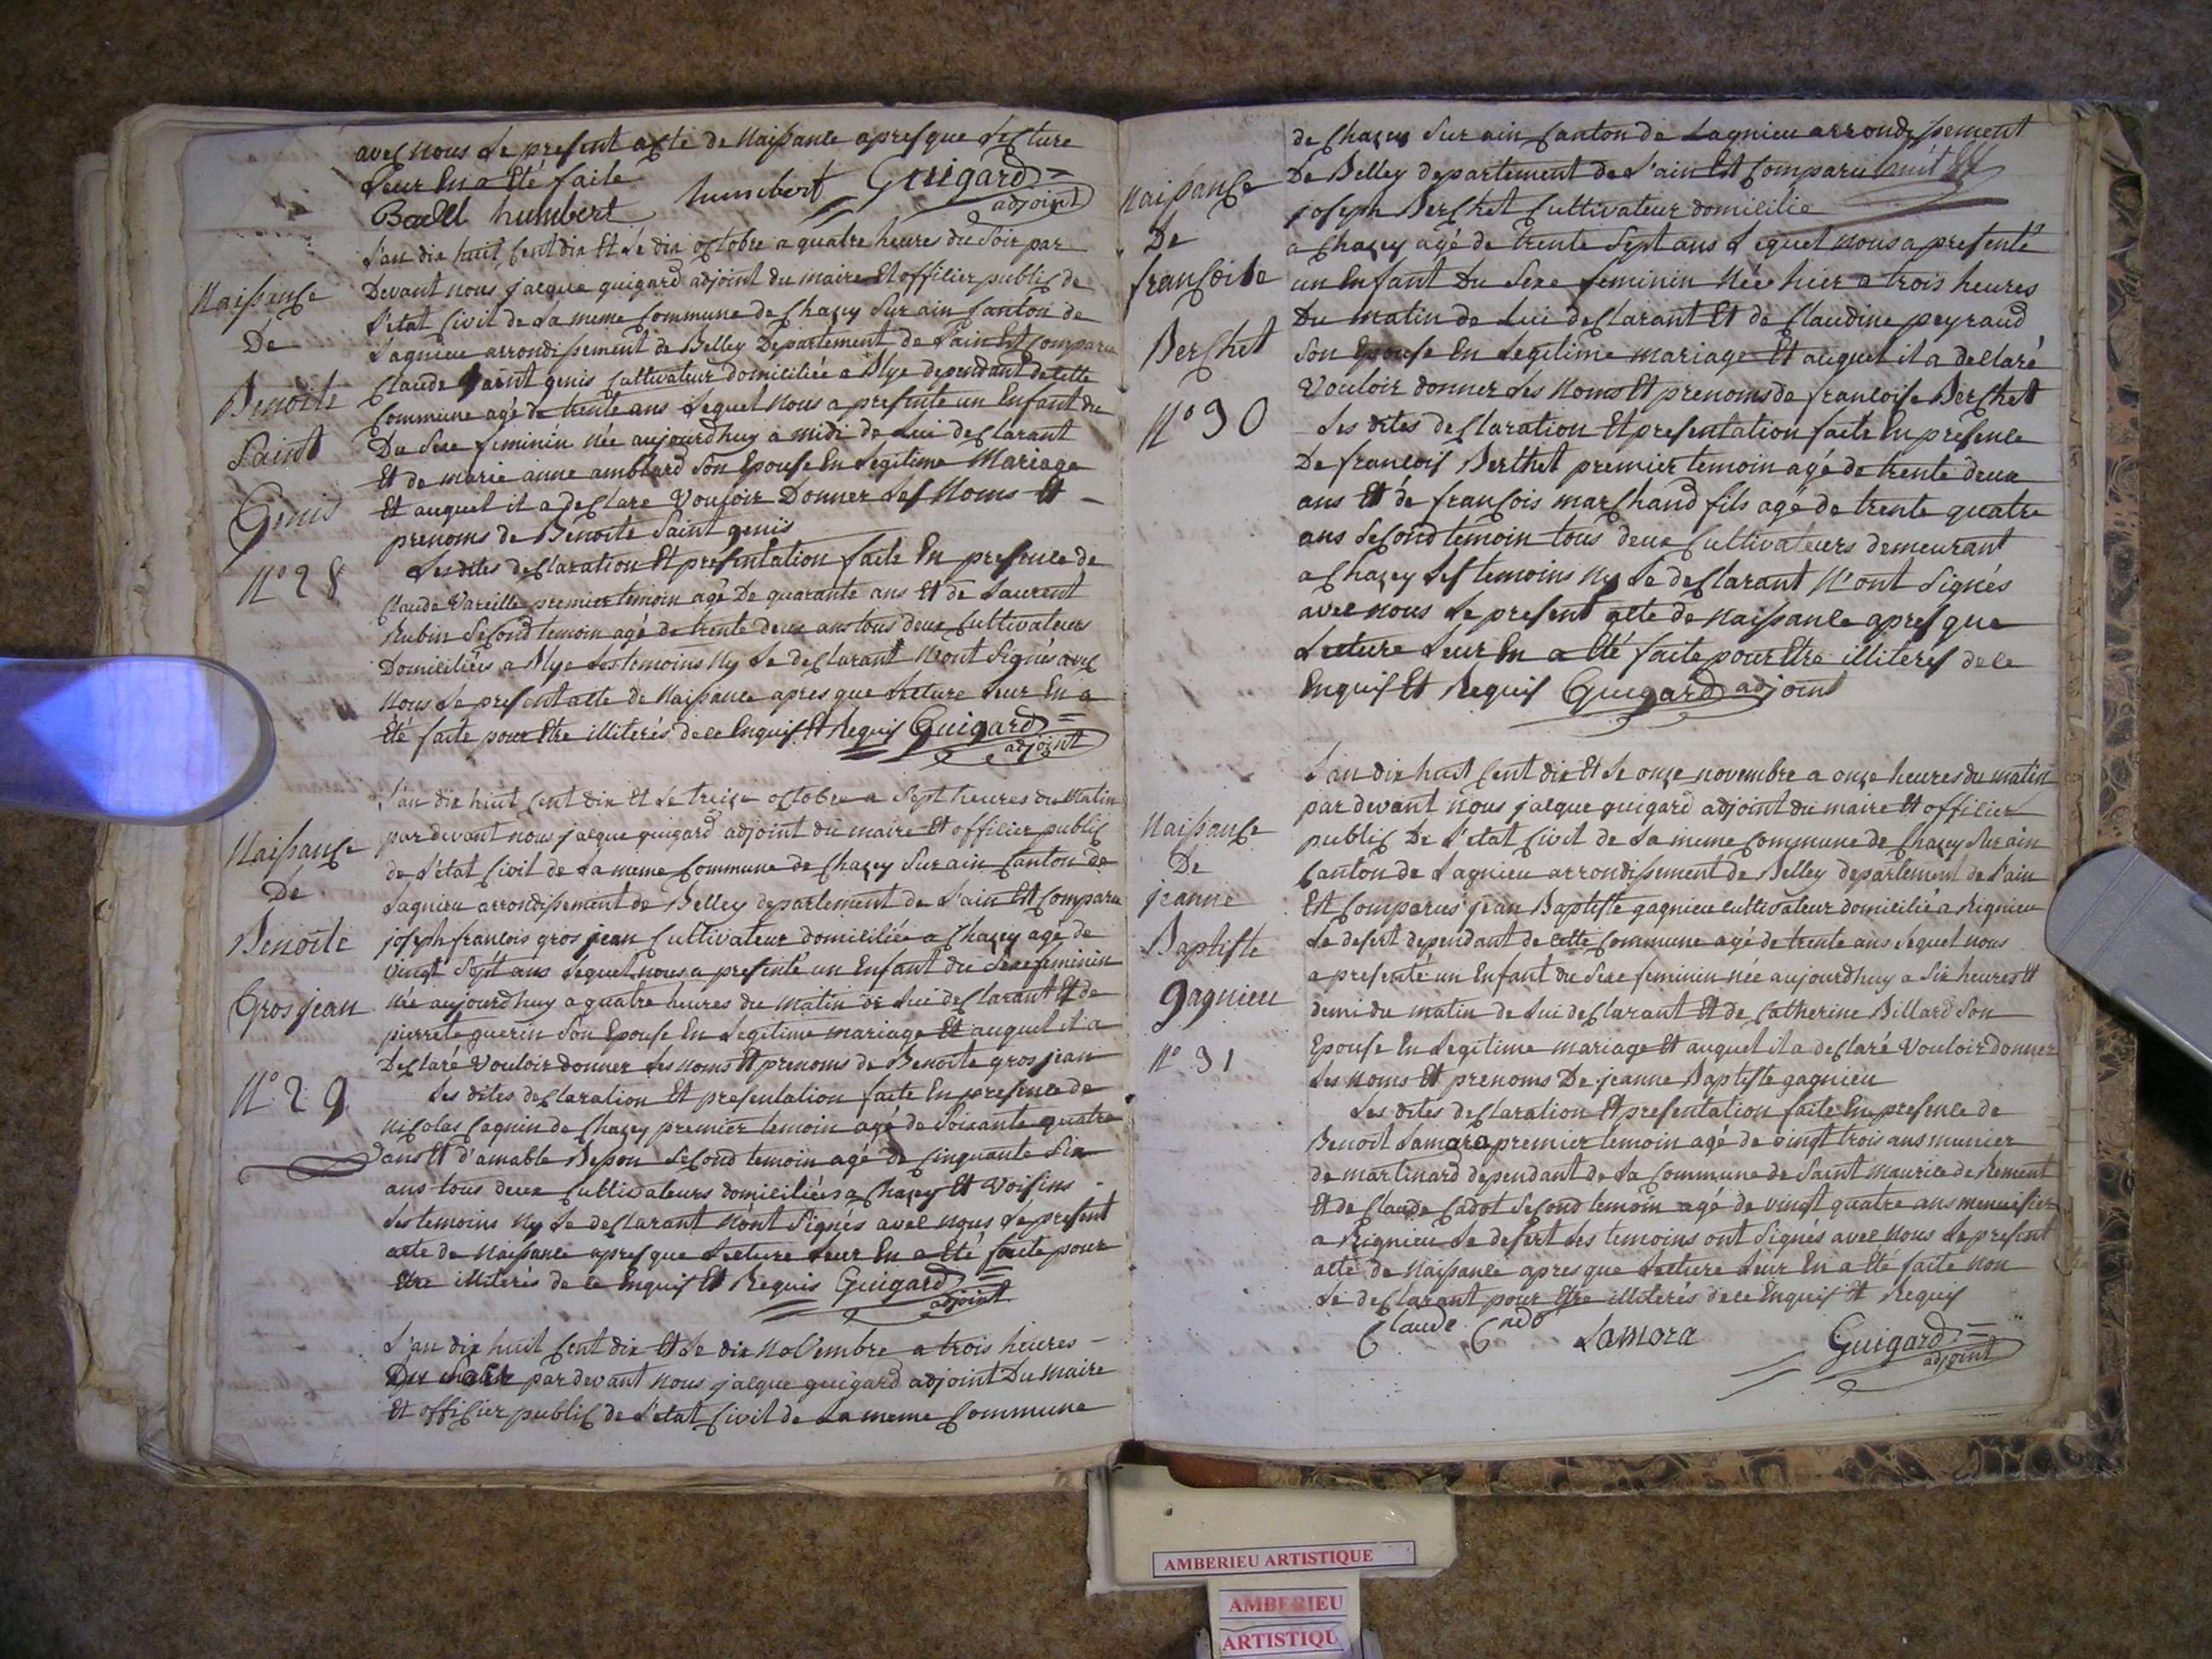 avec nous le present acte de Naissance apres que Lecture
Leur En a Eté faite
humbert Guigard
adjoint
humbert
Naissance
De
Benoite
Saint
Genis
N° 28
L'an dix huit Cent dix Et Le dix octobre a quatre heures du Soir par
Devant nous jacque guigard adjoint du maire Et officier public de
L'etat Civil de La meme Commune de Chazey Sur ain Canton de
Lagnieu arrondissement de Belley Departement de L'ain Est Comparu
Claude Saint genis Cultivateur domiciliée a Blye dependant de cette
Commune agé de trente ans Lequel Nous a presente un Enfant du
Du Sexe feminin née aujourdhuy a midi de Lui declarant
Et de marie anne amblard Son Epouse En Legitime Mariage
Et auquel il a declare Vouloir Donner Les Noms Et
prenoms de Benoite Saint genis
Les dites declaration Et presentation faite En presence de
Claude Vareille premier temoin agé De quarante ans Et de Laurent
Rubin Second temoin agé de trente deux ans tous deux Cultivateurs
Domiciliées a Blye Les temoins Ny Le declarant N'ont Signés avec
Nous Le present acte de Naissance apres que Lecture Leur En a
Eté faite pour Etre illiterés de ce Enquis Et Requis Guigard
adjoint
Naissance
De
Benoite
Gros jean
N° 29
L'an dix huit Cent dix Et Le treize octobre a Sept heures du Matin
par devant nous jacque guigard adjoint du maire Et officier public
de L'etat Civil de La meme Commune de Chazey Sur ain Canton de
Lagnieu arrondissement de Belley departement de L'ain Est Comparu
joseph francois gros jean Cultivateur domiciliée a Chazey agé de
vingt Sept ans Lequel nous a presenté un Enfant du Sexe feminin
née aujourdhuy a quatre heures du Matin de Lui declarant Et de
pierrete guerin Son Epouse En Legitime mariage Et auquel il a
Declaré Vouloir donner Les noms Et prenoms de Benoite gros jean
Les dites declaration Et presentation faite En presence de
Nicolas Cagnin de Chazey premier temoin agé de Soixante quatre
ans Et d'amable Besson Second temoin agé de Cinquante Six
ans tous deux Cultivateurs domiciliées a Chazey Et Voisins
Les temoins Ny Le declarant N'ont Signés avec nous Le present
acte de Naissance apres que Lecture Leur En a Eté faite pour
Etre illiterés de ce Enquis Et Requis Guigard
adjoint
L'an dix huit Cent dix Et Le dix Novembre a trois heures
Du Soir par devant nous jacque guigard adjoint Du maire
Et officier public de L'etat Civil de La meme Commune
Naissance
De
françoise
Berchet
N° 30
de Chazey Sur ain Canton de Lagnieu arrondissement
De Belley departement de L'ain Est Comparu
joseph Berchet Cultivateur domicilié
a Chazey agé de trente Sept ans Lequel nous a presenté
un Enfant Du Sexe feminin Née hier a trois heures
Du matin de Lui declarant Et de Claudine peyraud
Son Epouse En Legitime mariage Et auquel il a declaré
Vouloir donner Les Noms Et prenoms de francoise Berchet
Les dites declaration Et presentation faite En presence
De francois Berthet premier temoin agé de trente deux
ans Et de françois marchand fils agé de trente quatre
ans Second temoin tous deux Cultivateurs demeurant
a Chazey Les temoins Ny Le declarant N'ont Signés
avec nous Le present acte de Naissance apres que
Lecture Leur En a Eté faite pour Etre illiterés de ce
Enquis Et Requis Guigard adjoint
Naissance
De
jeanne
Baptiste
gagnieu
N° 31
L'an dix huit Cent dix Et Le onze novembre a onze heures du matin
par devant nous jacque guigard adjoint du maire Et officier
public De L'etat Civil de La meme Commune de Chazey Sur ain
Canton de Lagnieu arrondissement de Belley departement de L'ain
Est Comparus jean Baptiste gagnieu cultivateur domiciliée a Rignieu
Le desert dependant de cette Commune agé de trente ans Lequel nous
a presenté un Enfant du Sexe feminin née aujourdhuy a Six heures Et
demi du matin de Lui declarant Et de Catherine Billard Son
Epouse En Legitime mariage Et auquel il a declaré Vouloir donner
Les Noms Et prenoms De jeanne Baptiste gagnieu
Les dites declaration Et presentation faite En presence de
Benoit Lamora premier temoin agé de vingt trois ans munier
de martinard dependant de La Commune de Saint maurice de Rement
Et de Claude Cadot Second temoin agé de vingt quatre ans menuisier
a Rignieu Le desert Les temoins ont Signés avec nous Le present
acte de Naissance apres que Lecture Leur En a Eté faite non
Le declarant pour Etre illiterés de ce Enquis Et Requis
Claude Cado Lamora Guigard
adjoint
AMBERIEU ARTISTIQUE
AMBERIEU
ARTISTIQU